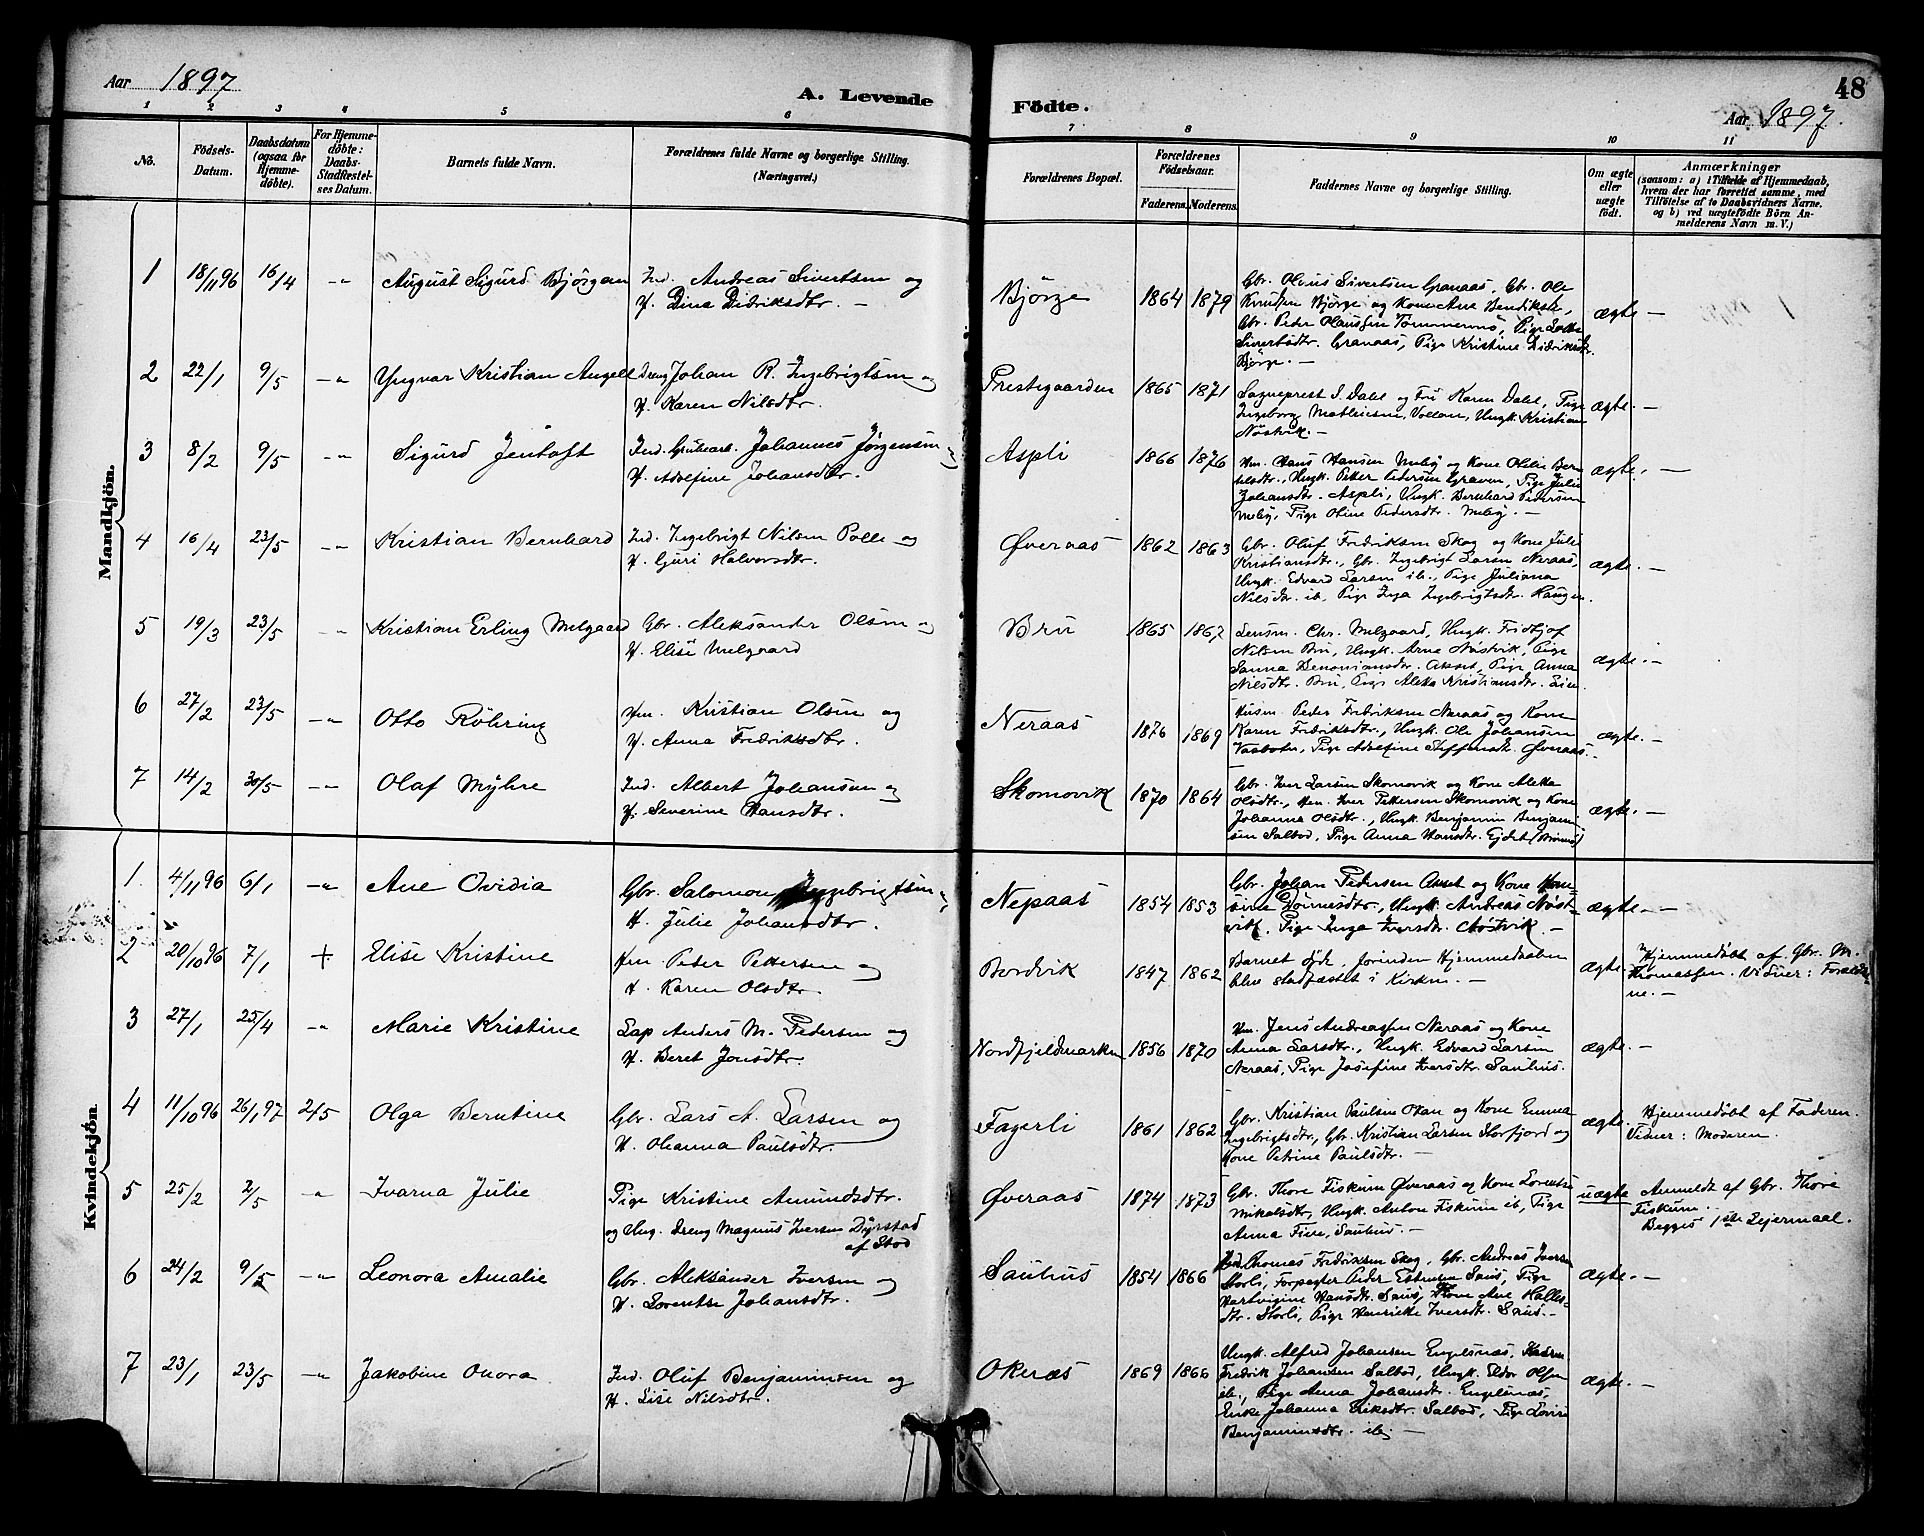 Aar 1897
A. Levende Födte.
48
Aar 1897.
1 2 3 4 5 6 7 8 9 10 11
No.
Födsels-Datum.
Daabsdatum (ogsaa for Hjemmedöbte).
For Hjemmedöbte: Daabs-Stadfæstelses Datum.
Barnets fulde Navn.
Forældrenes fulde Navne og borgerlige Stilling. (Næringsvei.)
Forældrenes Bopæl.
Forældrenes Födselsaar.
Faderens. Moderens.
Faddernes Navne og borgerlige Stilling.
Om ægte eller uægte födt.
Anmærkninger
(saasom: a) i Tilfælde af Hjemmedaab,
hvem der har forrettet samme, med
Tilföielse af to Daabsvidners Navne.
og b) ved uægtefödte Börn Anmelderens Navn m. V.)
Mandkjön.
1 18/11 96 16/4 -"- August Sigurd Bjørgan Ind. Andreas Sivertsen og
H. Dina Didriksdtr. —
Bjørge 1864 1879
Gbr. Olaus Sivertsen Granaas, Gbr. Ole
Knudsen Bjørge og Kone Ane Bendiksdtr.,
Gbr. Peder Olaussen Tømmermo, Pige
Sivertsdtr. Granaas, Pige Kristine Didriksdtr.
Bjørge. —
ægte. —
2 22/1 9/5 -"- Yngvar Kristian Angell Dreng Johan R. Ingebrigtsen og
H. Karen Nilsdtr.
Prestegaarden 1865 1871
Sogneprest I. Dahl og Fru Karen Dahl, Pige
Ingeborg Mathiesen, Vollan, Ungk. Kristian
Nøstvik. —
ægte. —
3 8/2 9/5 -"- Sigurd Jentoft Ind. Grubearb. Johannes Jørgensen og
H. Adolfine Johansdtr.
Aspli 1866 1876
Hm. Hans Hansen Moby og Kone Oldie Bern
, Ungk. Petter Pedersen Graven, Pige Julie
Johansdtr. Aspli, Ungk. Bernhard Pedersen
Pige Oline Pedersdtr. —
ægte. —
4 16/4 23/5 -"- Kristian Bernhard Ind. Ingebrigt Nilsen Polle og
H. Guri Halvorsdtr.
Øveraas 1862 1863
Gbr. Oluf Fredriksen Skog og Kone Julie
Kristiansdtr., Gbr. Ingebrigt Larsen Neraas,
Ungk. Edvard Larsen ib., Pige Juliana
Nilsdtr. ib, Pige Inga Ingebrigtsdtr. Haugen.
ægte. —
5 19/3 23/5 -"- Kristian Erling Melgaard Gbr. Aleksander Olsen og
H. Elise Melgaard
Bru 1865 1867
Lensm. Chr. Melgaard, Ungk. Fridtjof
Nilsen Bru, Ungk. Arne Nøstvik, Pige
Sanna Benoniansdtr. Akset, Pige Anna
Nilsdtr. Bru, Pige Aletta Kristiansdtr. Lien.
ægte. —
6 27/2 23/5 -"- Otto Röhring Hm. Kristian Olsen og
H. Anna Fredriksdtr.
Neraas 1876 1869
Husm. Peder Fredriksen Neraas og Kone
Karen Fredriksdtr., Ungk. Ole Johansen
Vasbotn, Pige Adolfine Steffensdtr. Øveraas.
ægte. —
7 14/2 30/5 -"- Olaf Myhre Ind. Albert Johansen og
H. Severine Hansdtr.
Skomovik 1870 1864
Gbr. Iver Larsen Skomovik og Kone Aletta
Olsdtr., Hm. Iver Pettersen Skomovik og Kone
Johanna Olsdtr., Ungk. Benjamin Benjaminsen
Salbod, Pige Anna Hansdtr. Ejdet (Bømø)
ægte. —
Kvindekjön.
1. 4/11 96 6/1 -"- Ane Ovidia Gbr. Salomon Ingebrigtsen og
H. Julie Johansdtr.
Nepaas 1854 1853
Gbr. Johan Pedersen Akset og Kone
, Ungk. Andreas Nøstvik,
Pige Inga Iversdtr. Nøstvik. —
ægte. —
2 20/10 96 7/1 + Elise Kristine Hm. Peter Pettersen og
H. Karen Olsdtr.
Bordvik 1847 1862
Barnet døde, forinden Hjemmedaaben
blev stadfæstet i Kirken. —
ægte.
Hjemmedøbt af Gbr. M.
Thomassen. Vidner: Forældrene. —
3 27/1 25/4 -"- Marie Kristine Lap Anders M. Pedersen og
H. Beret Jonsdtr.
Nordfjeldmarken 1856 1870
Hm. Jens Andreassen Neraas og Kone
Anna Larsdtr., Ungk. Edvard Larsen
Neraas, Pige Josefine Iversdtr. Saulhus.
ægte. —
4 11/10 96 26/1 97 2/5 Olga Berntine Gbr. Lars A. Larsen og
H. Oleanna Paulsdtr.
Fagerli 1861 1862
Gbr. Kristian Paulsen Okan og Kone Emma
Ingebrigtsdtr., Gbr. Kristian Larsen Storfjord og
Kone Petrine Paulsdtr. —
ægte.
Hjemmedøbt af Faderen.
Vidner: Moderen.
5 25/2 2/5 -"- Ivarna Julie Pige Kristine Amundsdtr.
og Ung. Dreng Magnus Iversen Dyrstad
af Stod
Øveraas 1874 1873
Gbr. Thore Fiskum Øveraas og Kone Lorentse
Mikalsdtr, Ungk. Anton Fiskum ib, Pige
Anna Fine, Saulhus. —
uægte
Anmeldt af Gbr. Thore
Fiskum.
Begges 1ste Lejermaal.
6 24/2 9/5 -"- Leonora Amalie Gbr. Aleksander Iversen og
H. Lorentse Johansdtr.
Saulhus 1854 1866
Thomas Fredriksen Skog, Gbr. Andreas Iversen
Storli, Forpagter Peder Estensen Saus, Pige
Hartvigine Hansdtr. Saus, Kone Ane Halles-
dtr. Storli, Pige Henrikke Iversdtr. Saus. —
ægte. —
7 23/1 23/5 -"- Jakobine Onora Ind. Oluf Benjaminsen og
H. Lise Nilsdtr.
Okenæs 1869 1866
Ungk. Alfred Johansen Engelsnæs,
Fredrik Johansen Salbod, Ungk. Eldor Olsen
ib., Pige Anna Johansdtr. Engelsnæs,
Enke Johanna Eriksdtr. Salbod, Pige Lovise
Benjaminsdtr. ib. —
ægte. —